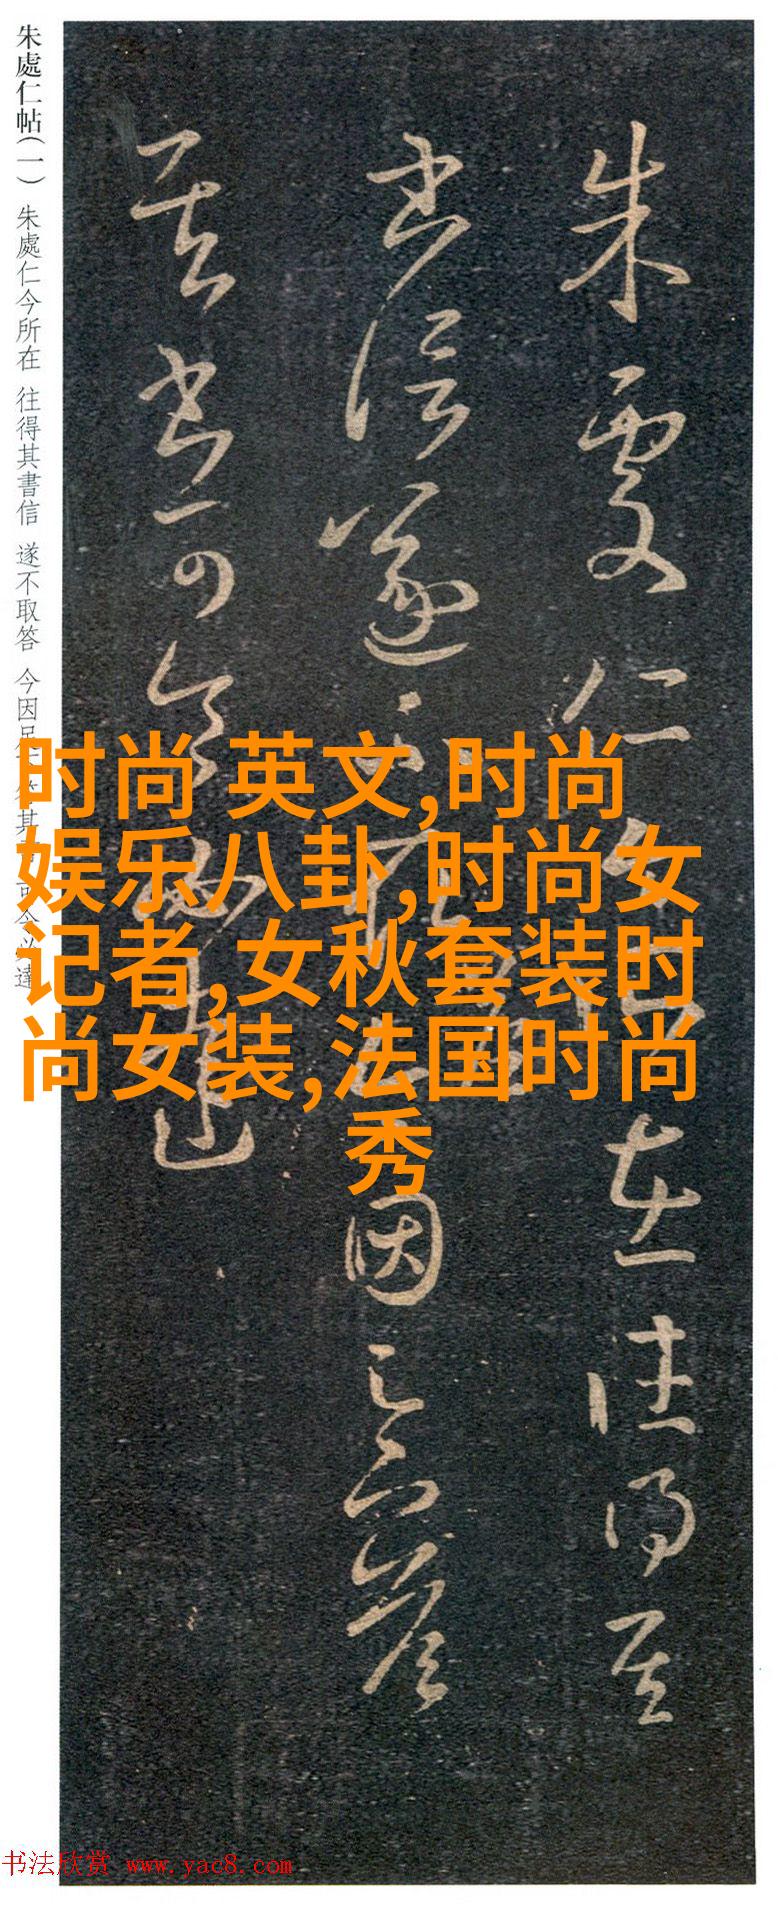 朱處仁帖(一) 朱處仁今所在 往得其書信 遂不取答 今因足下答其書 可令必達
朱處仁今所在往得其
書信遂不取答今因足下答
其書可令必達
时尚 英文,时尚
娱乐八卦,时尚女
记者,女秋套装时
尚女装,法国时尚
秀
书法欣赏 www.yac8.com